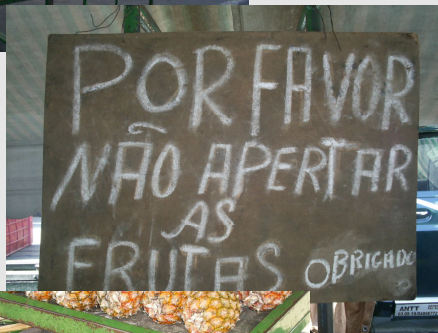 POR FAVOR
NÃO APERTAR
AS
FRUTAS OBRIGADO
ANTT